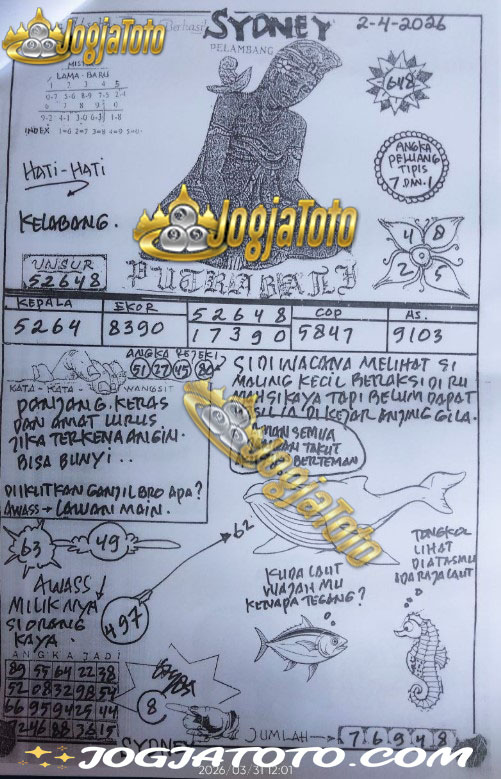 JogjaToto
SYDNEY
2-4-2026
PELAMBANG
LAMA - BARU
1 2 3 4 5
0-7 5-6 8-9 7-3 2-4
6 7 8 9 0
9-2 4-1 3-0 6-3 1-8
INDEX 1=6 2=7 3=8 4=9 5=0
648
HATI-HATI
KELABANG.
ANGKA
PELUANG
TIPIS
7 DAN 1
JogjaToto
4 8
2 5
UNSUR
52648
PUTRA BALI
KEPALA EKOR 52648 COP AS.
5264 8390 17390 5847 9103
ANGKA REJEKI
51 27 45 80
KATA-KATA WANGSIT
PANJANG. KERAS
DAN AMAT LURUS
JIKA TERKENA ANGIN.
BISA BUNYI..
DIIKUTKAN GANJIL BRO APA?
AWASS → LAWAN MAIN.
SIDI WACANA MELIHAT SI
MALING KECIL BERAKSI DI RU
MAH SIKAYA TAPI BELUM DAPAT
DI KEJAR ANJING GILA.
JogjaToto
MAN SEMUA
TAKUT
BERTEMAN
62
63
49
TONGKOL
LIHAT
DIATASMU
ADA RAJA LAUT
KUDA LAUT
WAJAH MU
KENAPA TEGANG?
AWASS
MILIKNYA
SIORANG
KAYA.
497
ANGKA JADI
89 55 64 22 38
52 08 32 98 54
66 95 94 25 44
72 46 88 36 15
8
JUMLAH → 76948
SYDNEY
JOGJATOTO.COM
2026/03/31 12:01